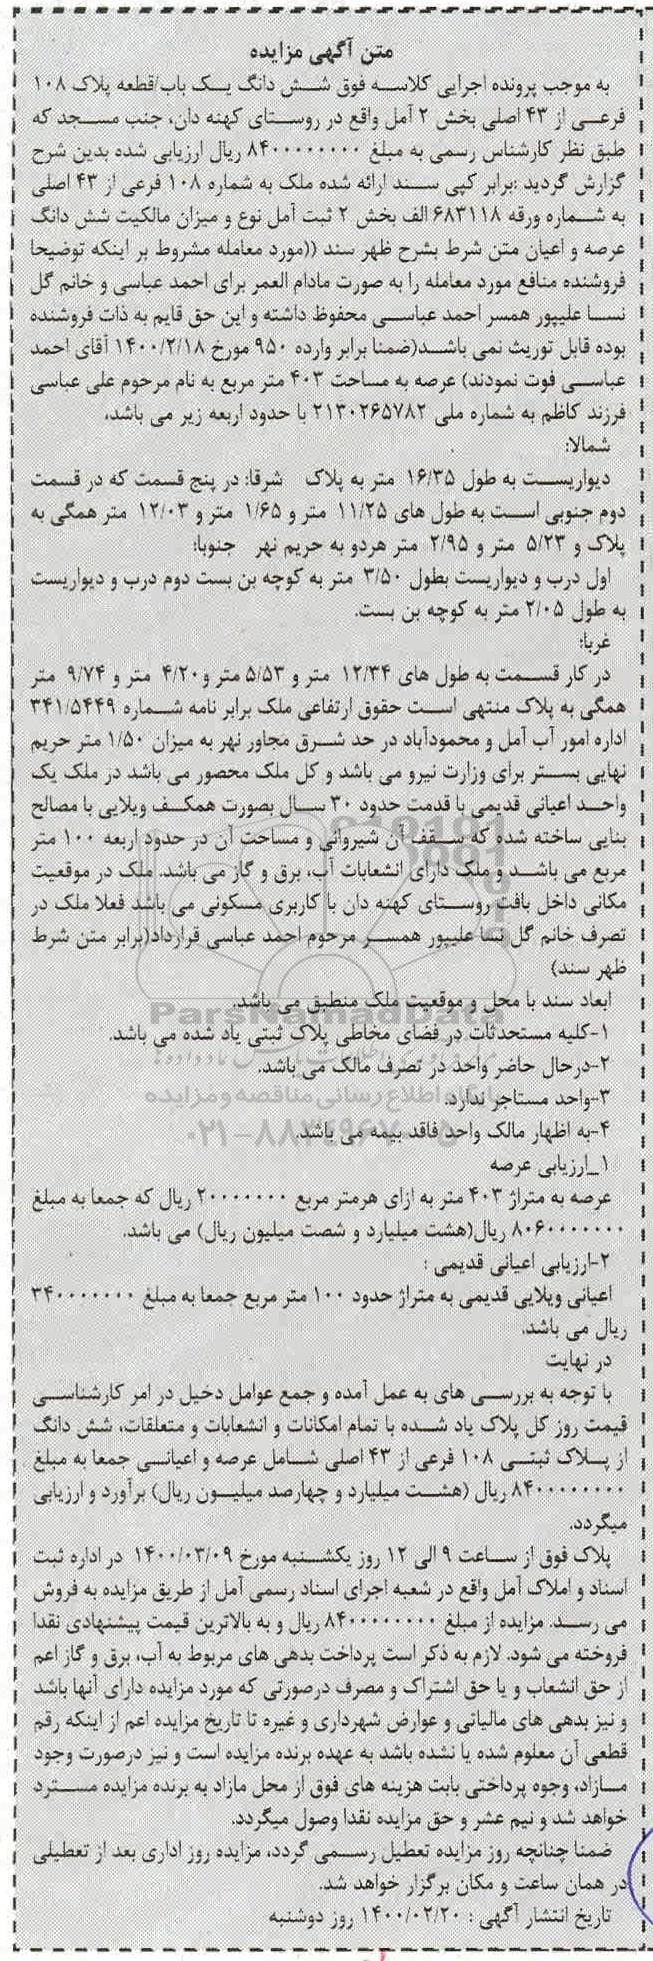 متن آگهی مزایده
به موجب پرونده اجرایی کلاسه فوق شش دانگ یک باب/قطعه پلاک ۱۰۸
فرعی از ۴۳ اصلی بخش ۲ آمل واقع در روستای کهنه دان، جنب مسجد که
طبق نظر کارشناس رسمی به مبلغ ۸۴۰۰۰۰۰۰۰۰ ریال ارزیابی شده بدین شرح
گزارش گردید :برابر کپی سند ارائه شده ملک به شماره ۱۰۸ فرعی از ۴۳ اصلی
به شماره ورقه ۶۸۳۱۱۸ الف بخش ۲ ثبت آمل نوع و میزان مالکیت شش دانگ
عرصه و اعیان متن شرط بشرح ظهر سند ((مورد معامله مشروط بر اینکه توضیحا
فروشنده منافع مورد معامله را به صورت مادام العمر برای احمد عباسی و خانم گل
نسا علیپور همسر احمد عباسی محفوظ داشته و این حق قایم به ذات فروشنده
بوده قابل توریث نمی باشد(ضمنا برابر وارده ۹۵۰ مورخ ۱۴۰۰/۲/۱۸ آقای احمد
عباسی فوت نمودند) عرصه به مساحت ۴۰۳ متر مربع به نام مرحوم علی عباسی
فرزند کاظم به شماره ملی ۲۱۳۰۲۶۵۷۸۲ با حدود اربعه زیر می باشد،
شمالا:
دیواریست به طول ۱۶/۳۵ متر به پلاک شرقا: در پنج قسمت که در قسمت
دوم جنوبی است به طول های ۱۱/۲۵ متر و ۱/۶۵ متر و ۱۲/۰۳ متر همگی به
پلاک و ۵/۲۳ متر و ۲/۹۵ متر هردو به حریم نهر جنوبا:
اول درب و دیواریست بطول ۳/۵۰ متر به کوچه بن بست دوم درب و دیواریست
به طول ۲/۰۵ متر به کوچه بن بست.
غربا:
در کار قسمت به طول های ۱۲/۳۴ متر و ۵/۵۳ متر و۴/۲۰ متر و ۹/۷۴ متر
همگی به پلاک منتهی است حقوق ارتفاعی ملک برابر نامه شماره ۳۴۱/۵۴۴۹
اداره امور آب آمل و محمودآباد در حد شرق مجاور نهر به میزان ۱/۵۰ متر حریم
نهایی بستر برای وزارت نیرو می باشد و کل ملک محصور می باشد در ملک یک
واحد اعیانی قدیمی با قدمت حدود ۳۰ سال بصورت همکف ویلایی با مصالح
بنایی ساخته شده که سقف آن شیروانی و مساحت آن در حدود اربعه ۱۰۰ متر
مربع می باشد و ملک دارای انشعابات آب، برق و گاز می باشد. ملک در موقعیت
مکانی داخل بافت روستای کهنه دان با کاربری مسکونی می باشد فعلا ملک در
تصرف خانم گل نسا علیپور همسر مرحوم احمد عباسی قرارداد(برابر متن شرط
ظهر سند)
ابعاد سند با محل و موقعیت ملک منطبق می باشد.
ParsNamadData
۱-کلیه مستحدثات در فضای مخاطی پلاک ثبتی یاد شده می باشد.
۲-درحال حاضر واحد در تصرف مالک می باشد.
۳-واحد مستاجر ندارد
پایگاه اطلاع رسانی مناقصه و مزایده
۴-به اظهار مالک واحد فاقد بیمه می باشد.
۰۲۱-۸۸۳۴۹۶۷۰-۵
۱_ارزیابی عرصه
عرصه به متراژ ۴۰۳ متر به ازای هرمتر مربع ۲۰۰۰۰۰۰۰ ریال که جمعا به مبلغ
۸۰۶۰۰۰۰۰۰۰ ریال(هشت میلیارد و شصت میلیون ریال) می باشد.
۲-ارزیابی اعیانی قدیمی :
اعیانی ویلایی قدیمی به متراژ حدود ۱۰۰ متر مربع جمعا به مبلغ ۳۴۰۰۰۰۰۰۰
ریال می باشد.
در نهایت
با توجه به بررسی های به عمل آمده و جمع عوامل دخیل در امر کارشناسی
قیمت روز کل پلاک یاد شده با تمام امکانات و انشعابات و متعلقات، شش دانگ
از پلاک ثبتی ۱۰۸ فرعی از ۴۳ اصلی شامل عرصه و اعیانی جمعا به مبلغ
۸۴۰۰۰۰۰۰۰۰ ریال (هشت میلیارد و چهارصد میلیون ریال) برآورد و ارزیابی
میگردد.
پلاک فوق از ساعت ۹ الی ۱۲ روز یکشنبه مورخ ۱۴۰۰/۰۳/۰۹ در اداره ثبت
اسناد و املاک آمل واقع در شعبه اجرای اسناد رسمی آمل از طریق مزایده به فروش
می رسد. مزایده از مبلغ ۸۴۰۰۰۰۰۰۰۰ ریال و به بالاترین قیمت پیشنهادی نقدا
فروخته می شود. لازم به ذکر است پرداخت بدهی های مربوط به آب، برق و گاز اعم
از حق انشعاب و یا حق اشتراک و مصرف درصورتی که مورد مزایده دارای آنها باشد
و نیز بدهی های مالیاتی و عوارض شهرداری و غیره تا تاریخ مزایده اعم از اینکه رقم
قطعی آن معلوم شده یا نشده باشد به عهده برنده مزایده است و نیز درصورت وجود
مازاد، وجوه پرداختی بابت هزینه های فوق از محل مازاد به برنده مزایده مسترد
خواهد شد و نیم عشر و حق مزایده نقدا وصول میگردد.
ضمنا چنانچه روز مزایده تعطیل رسمی گردد، مزایده روز اداری بعد از تعطیلی
در همان ساعت و مکان برگزار خواهد شد.
تاریخ انتشار آگهی : ۱۴۰۰/۰۲/۲۰ روز دوشنبه